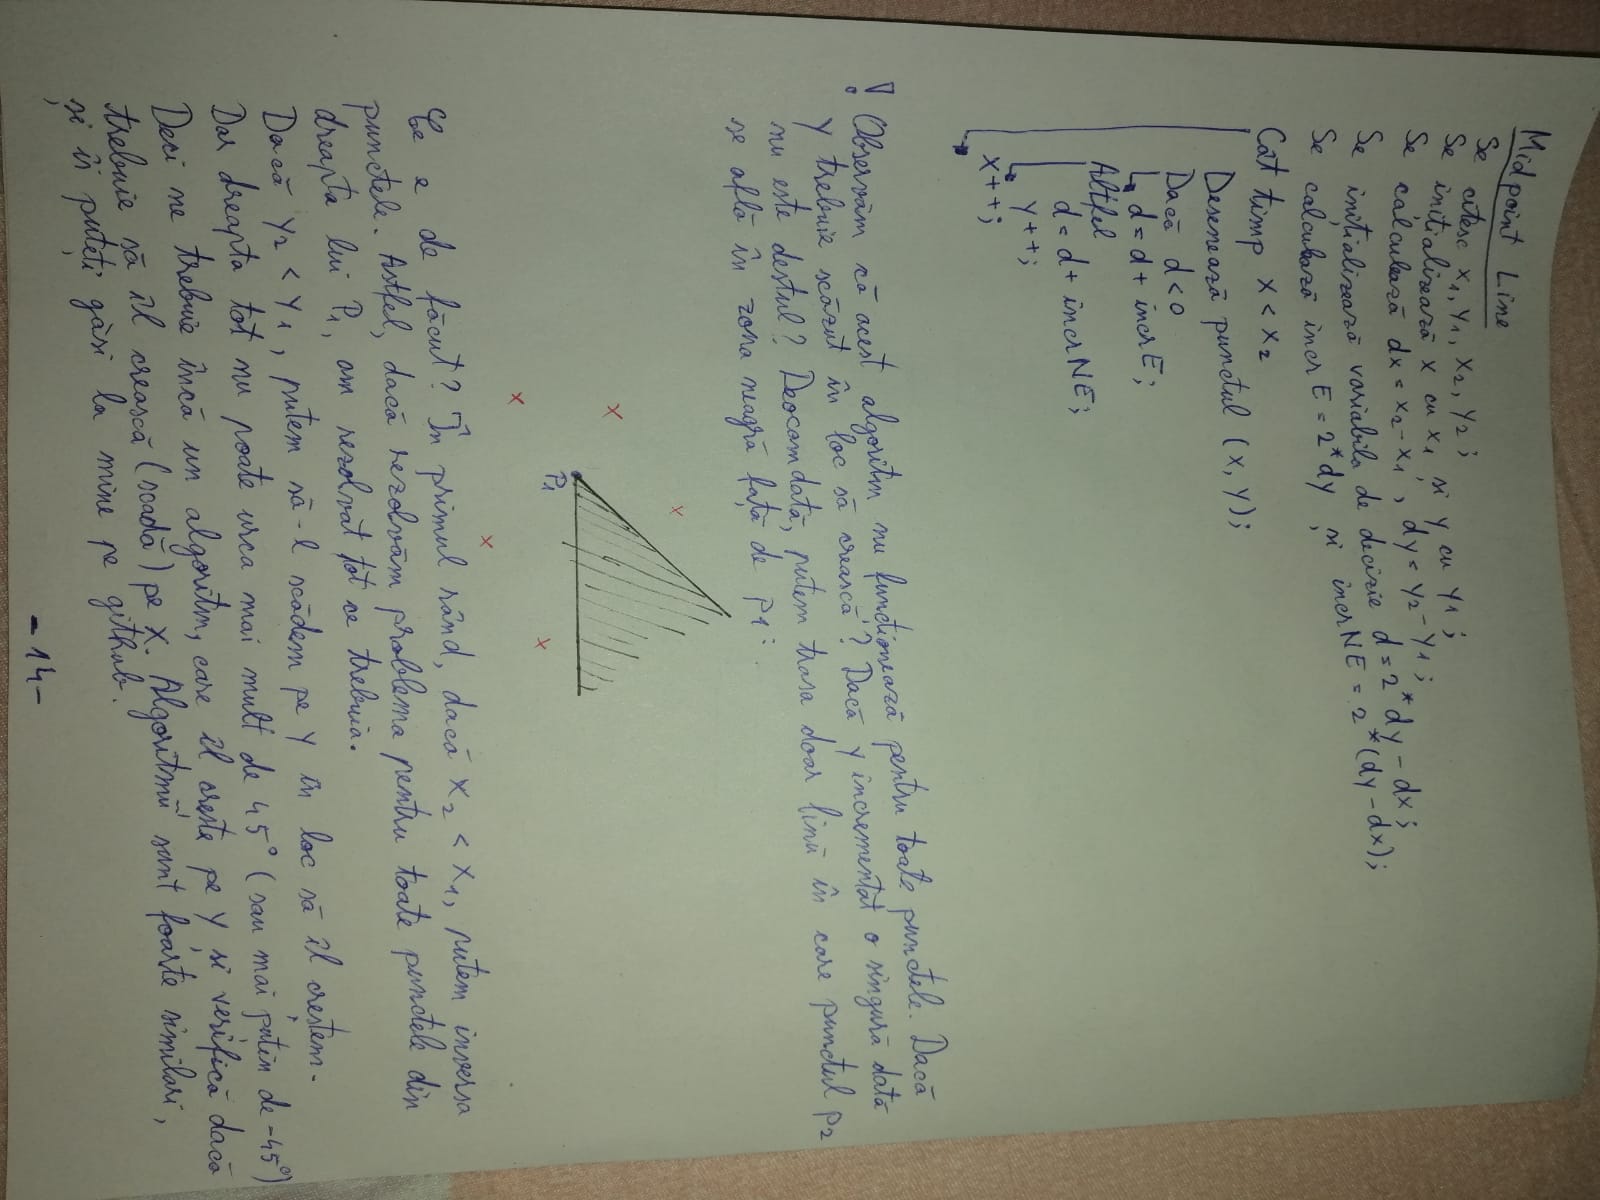 Midpoint Line
Se citesc x1, y1, x2, y2;
Se initializează x cu x1, și y cu y1;
Se calculează dx = x2 - x1, dy = y2 - y1;
Se inițializează variabila de decizie d = 2*dy - dx;
Se calculează incrE = 2*dy, și incrNE = 2*(dy - dx);
Cât timp x < x2
Desenează punctul (x, y);
Dacă d<0
d = d + incrE;
Altfel
d = d + incrNE;
y++;
x++;
! Observăm că acest algoritm nu funcționează pentru toate punctele. Dacă
y trebuie scăzut în loc să crească? Dacă y incrementat o singură dată
nu este destul? Deocamdată, putem trasa doar linii în care punctul P2
se află în zona neagră față de P1:
x
x
x
P1
x
x
Ce e de făcut? În primul rând, dacă x2 < x1, putem inversa
punctele. Astfel, dacă rezolvăm problema pentru toate punctele din
dreapta lui P1, am rezolvat tot ce trebuia.
Dacă y2 < y1, putem să-l scădem pe y în loc să îl creștem.
Dar dreapta tot nu poate urca mai mult de 45° (sau mai puțin de -45°)
Deci ne trebuie încă un algoritm, care îl crește pe y și verifică dacă
trebuie să îl crească (scadă) pe x. Algoritmii sunt foarte similari,
și îi puteți găsi la mine pe github.
- 14 -